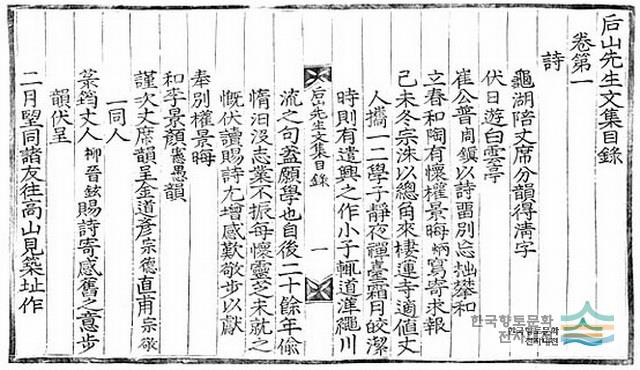 后山先生文集目錄
卷第一
詩
龜湖陪丈席分韻得淸字
伏日遊白雲亭
崔公普周鎭以詩留別忘拙攀和
立春和陶有懷權景晦炳寫寄求報
己未冬宗洙以總角來棲蓮寺適値丈
人携一二學子靜夜禪臺霜月皎潔
時則有遣興之作小子輒道渾繩川
流之句盖願學也自後二十餘年偸
惰汩沒志業不振每懷靈芝未就之
慨伏讀賜詩尤增感歎敬步以獻
奉別權景晦
和李景顏愚韻
謹次丈席韻呈金道彥宗德直甫宗敬
一同人
丈人柳晉鉉賜詩寄感舊之意步
韻伏呈
二月望同諸友往高山見築址作
后山先生文集目錄
一
한국향토문화
전자대전
한국향토문화
전자대전